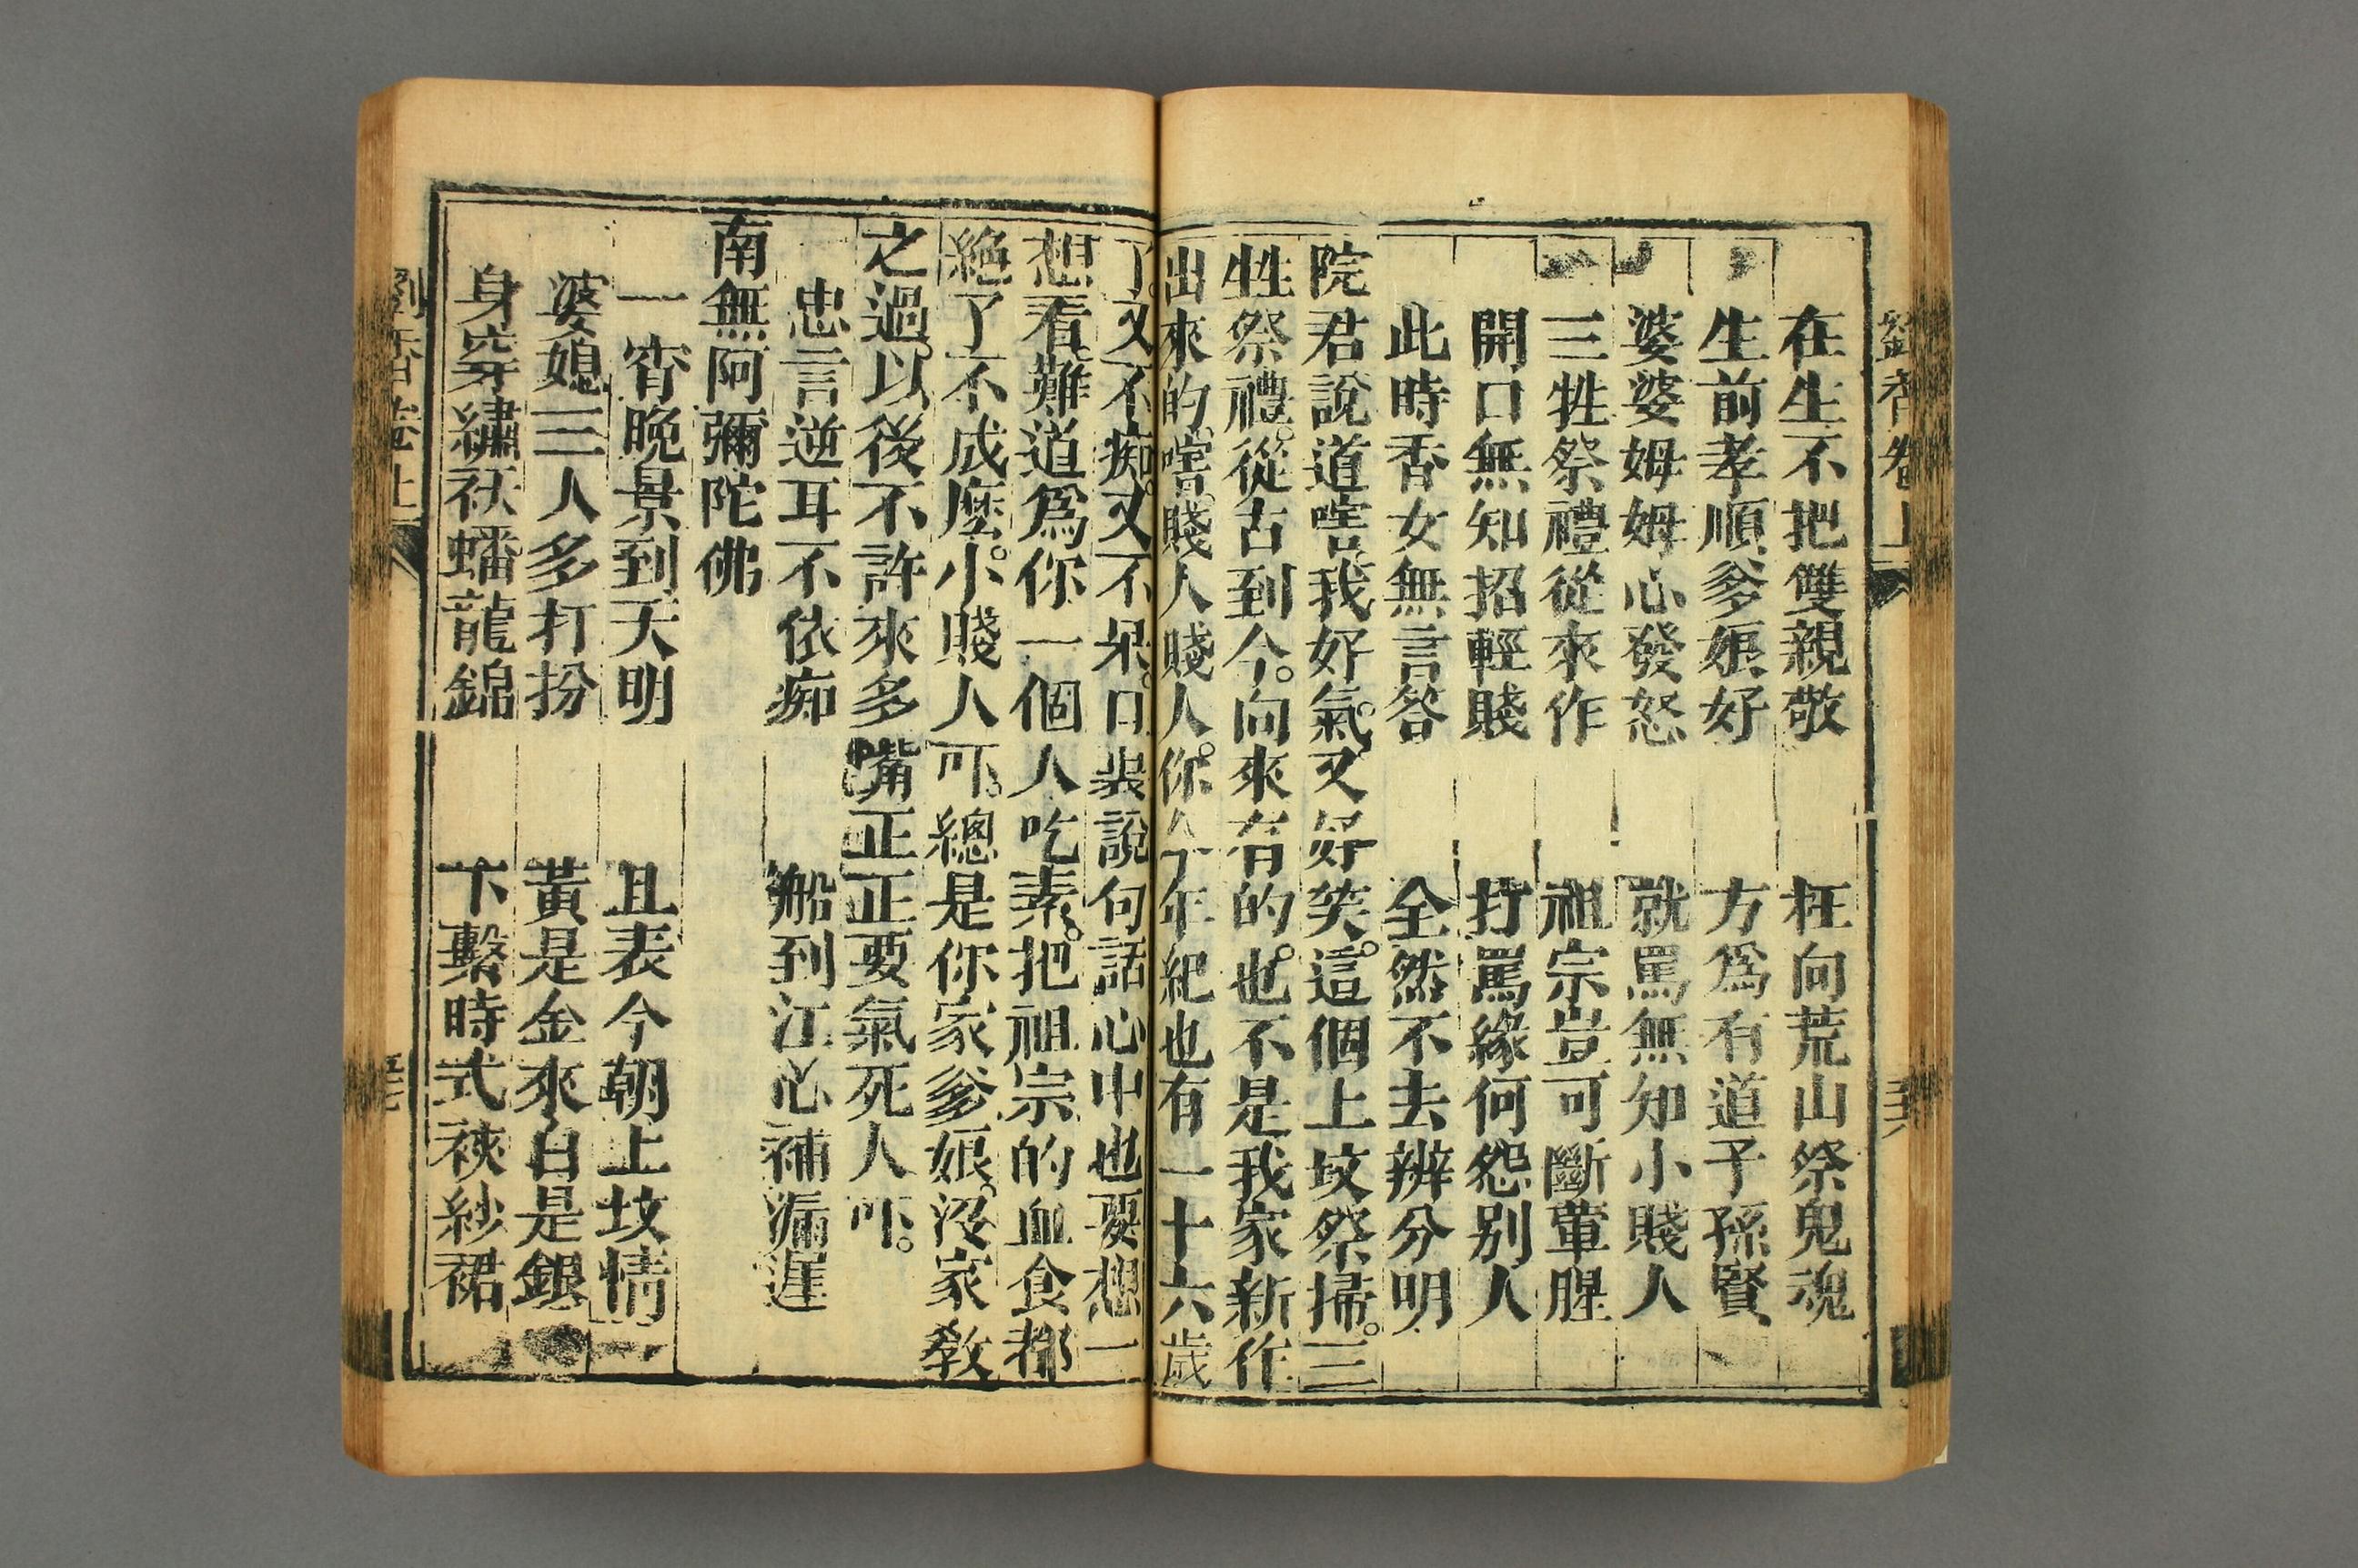 在生不把雙親敬　枉向荒山祭鬼魂
生前孝順爹娘好　方爲有道子孫賢
婆婆姆姆心發怒　就罵無知小賤人
三牲祭禮從來作　祖宗豈可斷葷腥
開口無知招輕賤　打罵緣何怨别人
此時香女無言答　全然不去辨分明
院君說道啥我好氣。又好笑。這個上坟祭掃。三
牲祭禮。從古到今。向來有的。也不是我家新作
出來的。啥。賤人賤人。你今年紀也有一十六歲
了。又不痴。又不呆。口裴說句話心中也要想一
想看。難道爲你一個人吃素。把祖宗的血食都
絶了不成麽。小賤人吓。總是你家爹娘。没家敎
之過。以後不許來多嘴正正要氣死人吓。
忠言逆耳不依痴　船到江心補漏遲
南無阿彌陀佛
一宵晚景到天明　且表今朝上坟情
婆媳三人多打扮　黃是金來白是銀
身穿繡袄蟠龍錦　下繫時式裌紗裙
劉香卷上